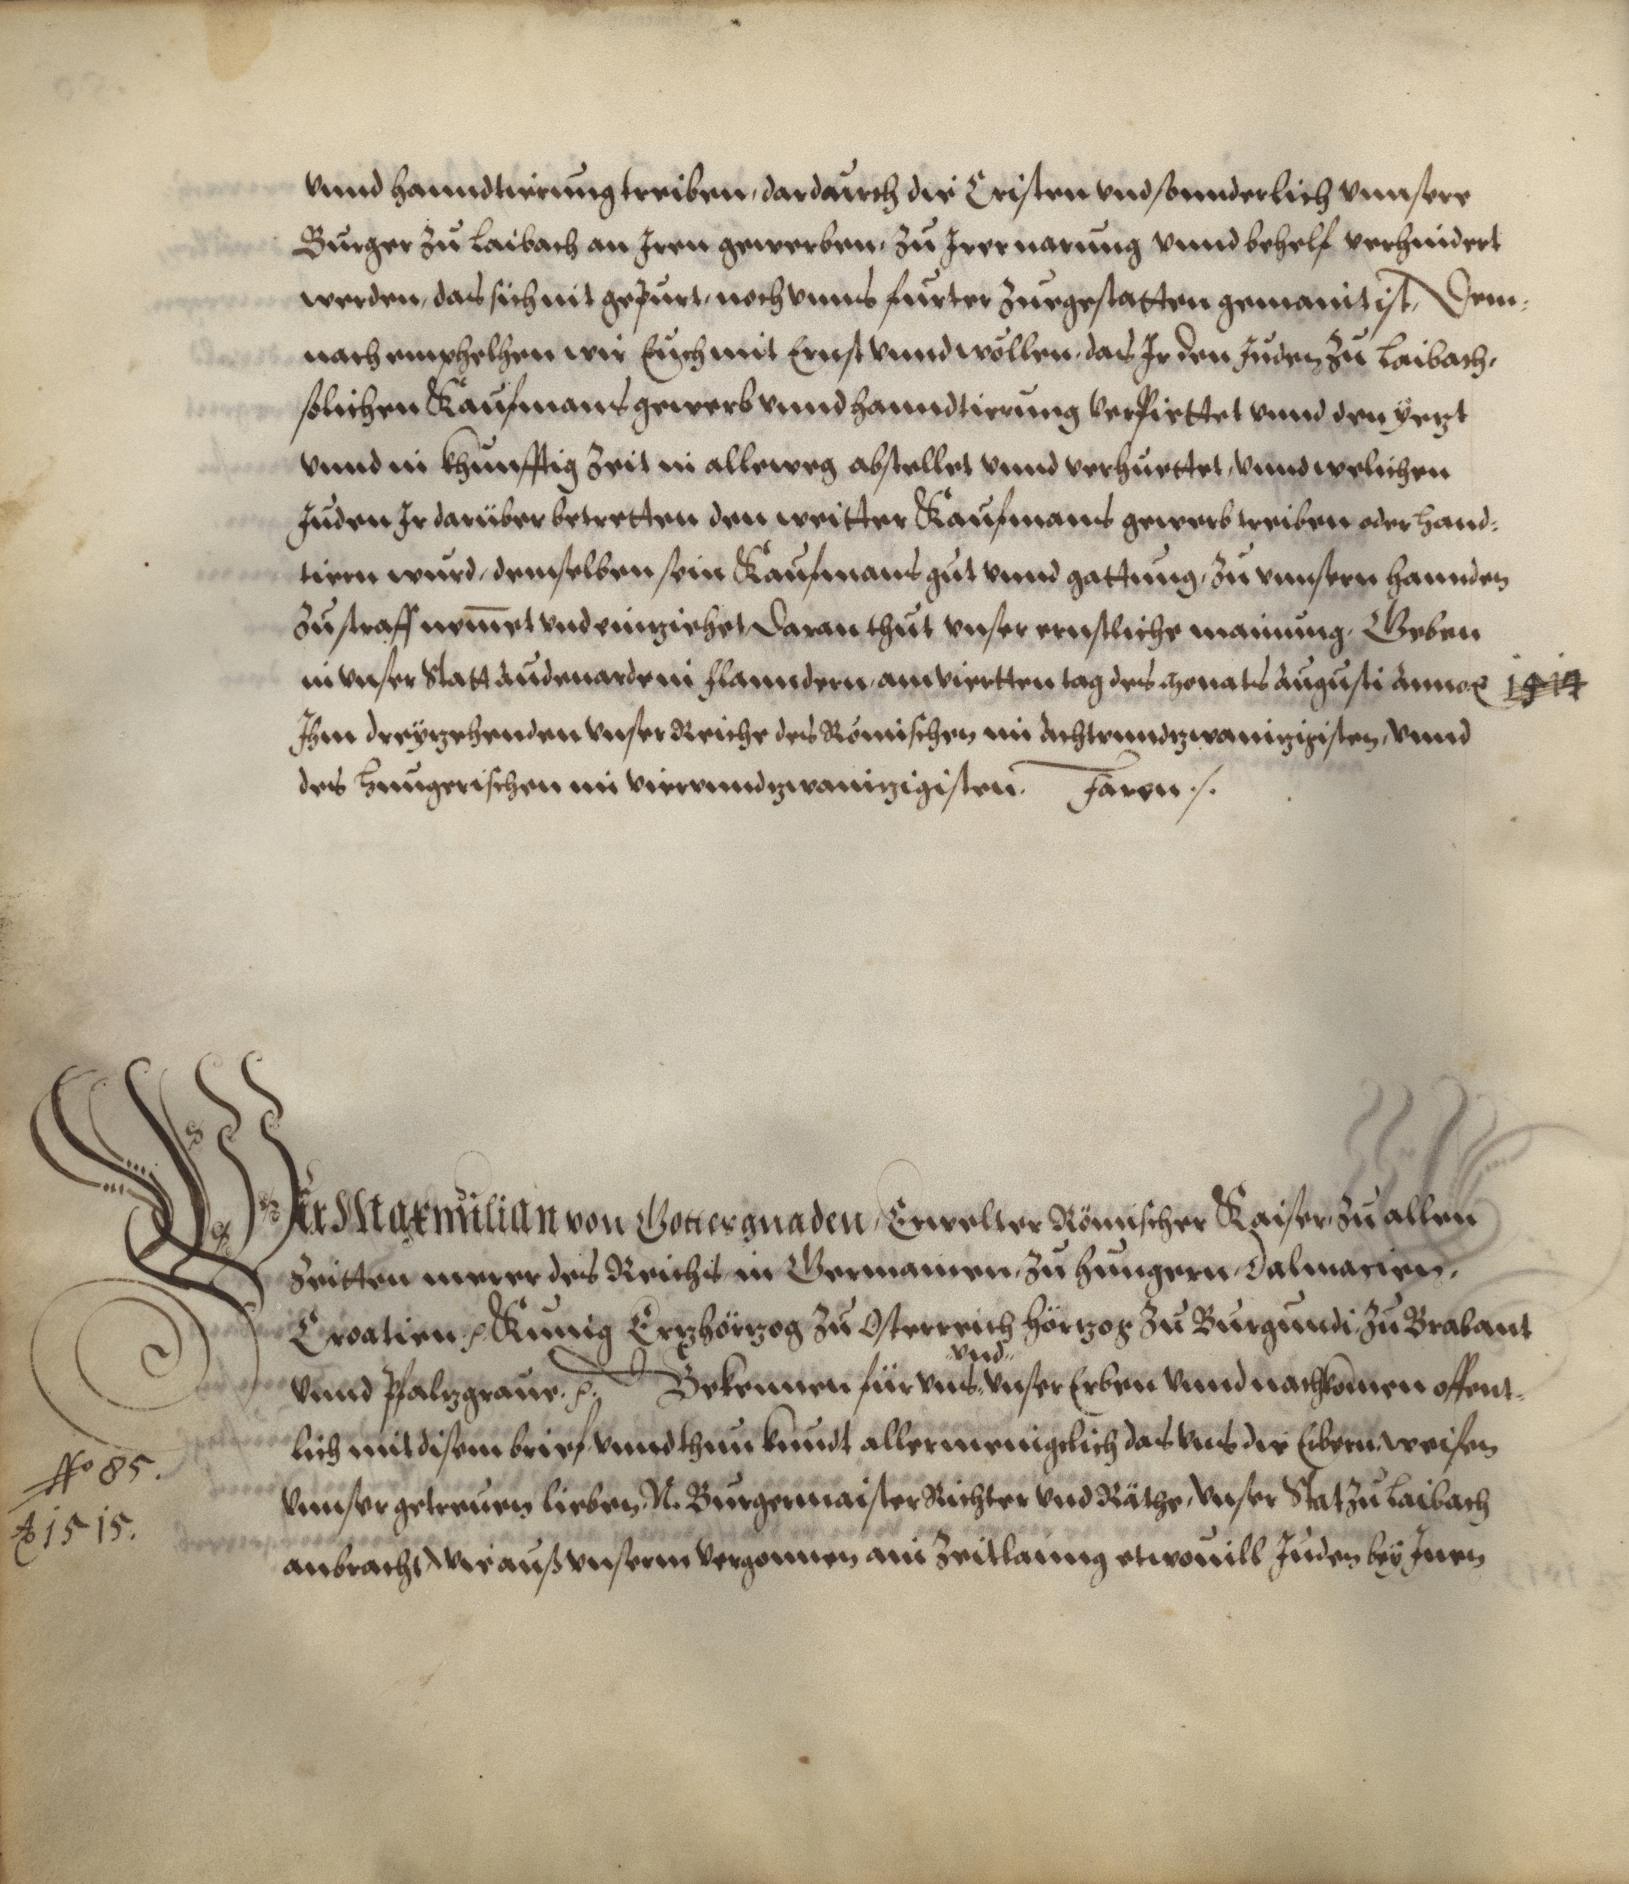 vnnd hanndtierung treiben, dardaurch die Cristen vnd sonnderlich vnnsere
Burger zu Laibach an Iren gewerben, zu Irer narung vnnd behelf verhindert
werden, das sich nit gepurt, noch vnns furter zuegestatten gemaint ist, Dem-
nach emphelhen wir Euch mit Ernst vnnd wöllen, das Ir den Juden zu Laibach,
solichen Kaufmans gewerb vnnd hanndtierung verpiettet vnnd den yetzt
vnnd in khunfftig Zeit in alleweg abstellet vnnd verhuettet, vnnd welichen
Juden Ir darüber betretten den weitter Kaufmans gewerb treiben oder hand-
tiern wurd, demselben sein Kaufmans gut vnnd gattung, zu vnnsern hannden
zu straff nemet vnd einziehet, Daran thut vnser ernstliche mainung, Geben
in vnser Statt Audenarde in flanndern, am viertten tag des Monats Augusti Anno
Ihm dreyzehenden vnser Reiche des Römischen im Achtvnndzwainzigisten, vnnd
des Hungerischen im viervnndzwainzigisten. Faren ./.
Wir Maxmilian von Gottes gnaden, Erwelter Römischer Kaiser, zu allen
Zeitten merer des Reichs in Germanien, zu Hungern, Dalmacien,
Croatien ꝛ. Kunig Ertzhörtzog zu Osterreich Hörtzog zu Burgundi, zu Brabant
vnnd Pfaltzgraue. ꝛ. Bekennen für vns, vnd vnser Erben vnnd nachkomen offent-
lich mit disem brief, vnnd thun kundt allermenigelich das vns die Erbern, weisen
vnnser getreuen lieben, N. Burgermaister Richter vnd Räthe, vnser Stat zu Laibach
anbracht, wie auß vnserm vergonnen ain Zeitlanng etwouill Juden bey Inen
No 85.
Ao 1515.